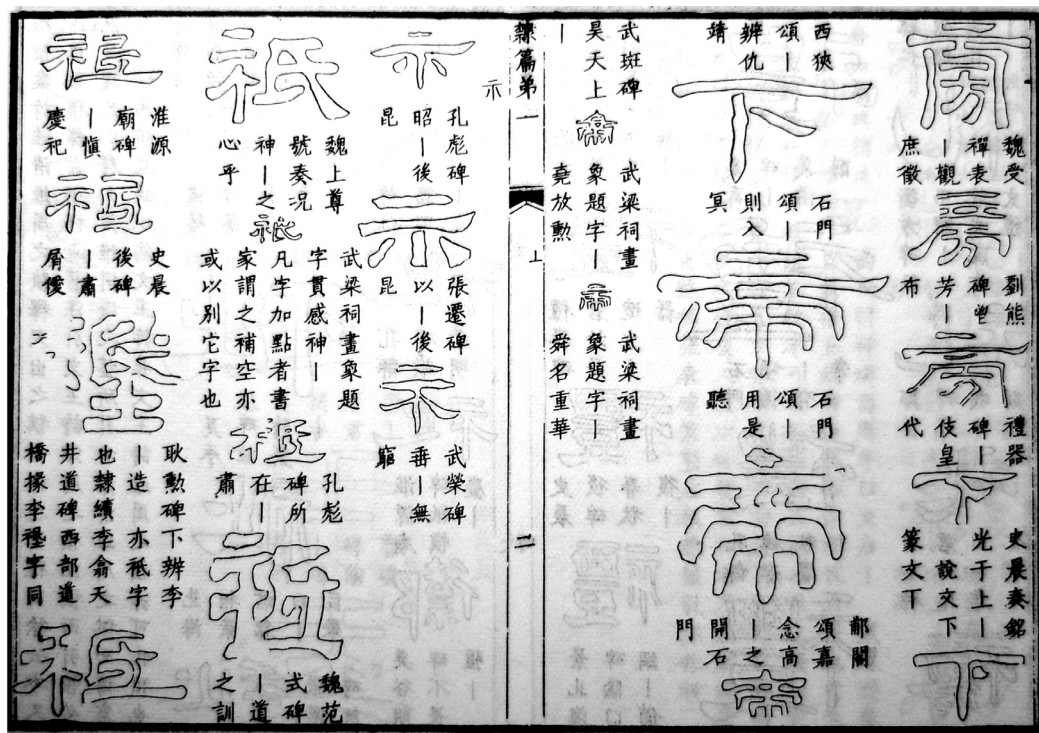 旁
魏受
禪表
｜觀
庶徵
旁
劉熊
碑
芳｜
布
旁
禮器
碑｜
伎皇
代
下
史晨奏銘
光于上｜
說文下
篆文丅
下
西狹
頌｜
辨仇
靖
下
石門
頌｜
則入
冥
帝
石門
頌｜
用是
聽
帝
郙閣
頌嘉
念高
｜之
開石
門
帝
武斑碑
昊天上
｜
帝
武梁祠畫
象題字｜
堯放勲
帝
武梁祠畫
象題字｜
舜名重華
隸篇弟一
上
二
示
示
孔彪碑
昭｜後
昆
示
張遷碑
以｜後
昆
示
武榮碑
垂｜無
窮
祇
魏上尊
號奏況
神｜之
心乎
祇
武梁祠畫象題
字貫感神｜
凡字加點者書
家謂之補空亦
或以別它字也
祗
孔彪
碑所
在｜
肅
祗
魏范
式碑
｜道
之訓
祗
淮源
廟碑
｜愼
慶祀
祗
史晨
後碑
｜肅
屑僾
耿勳碑下辨李
｜造 亦祗字
也隸續李翕天
井道碑西部道
橋掾李 字同
祗